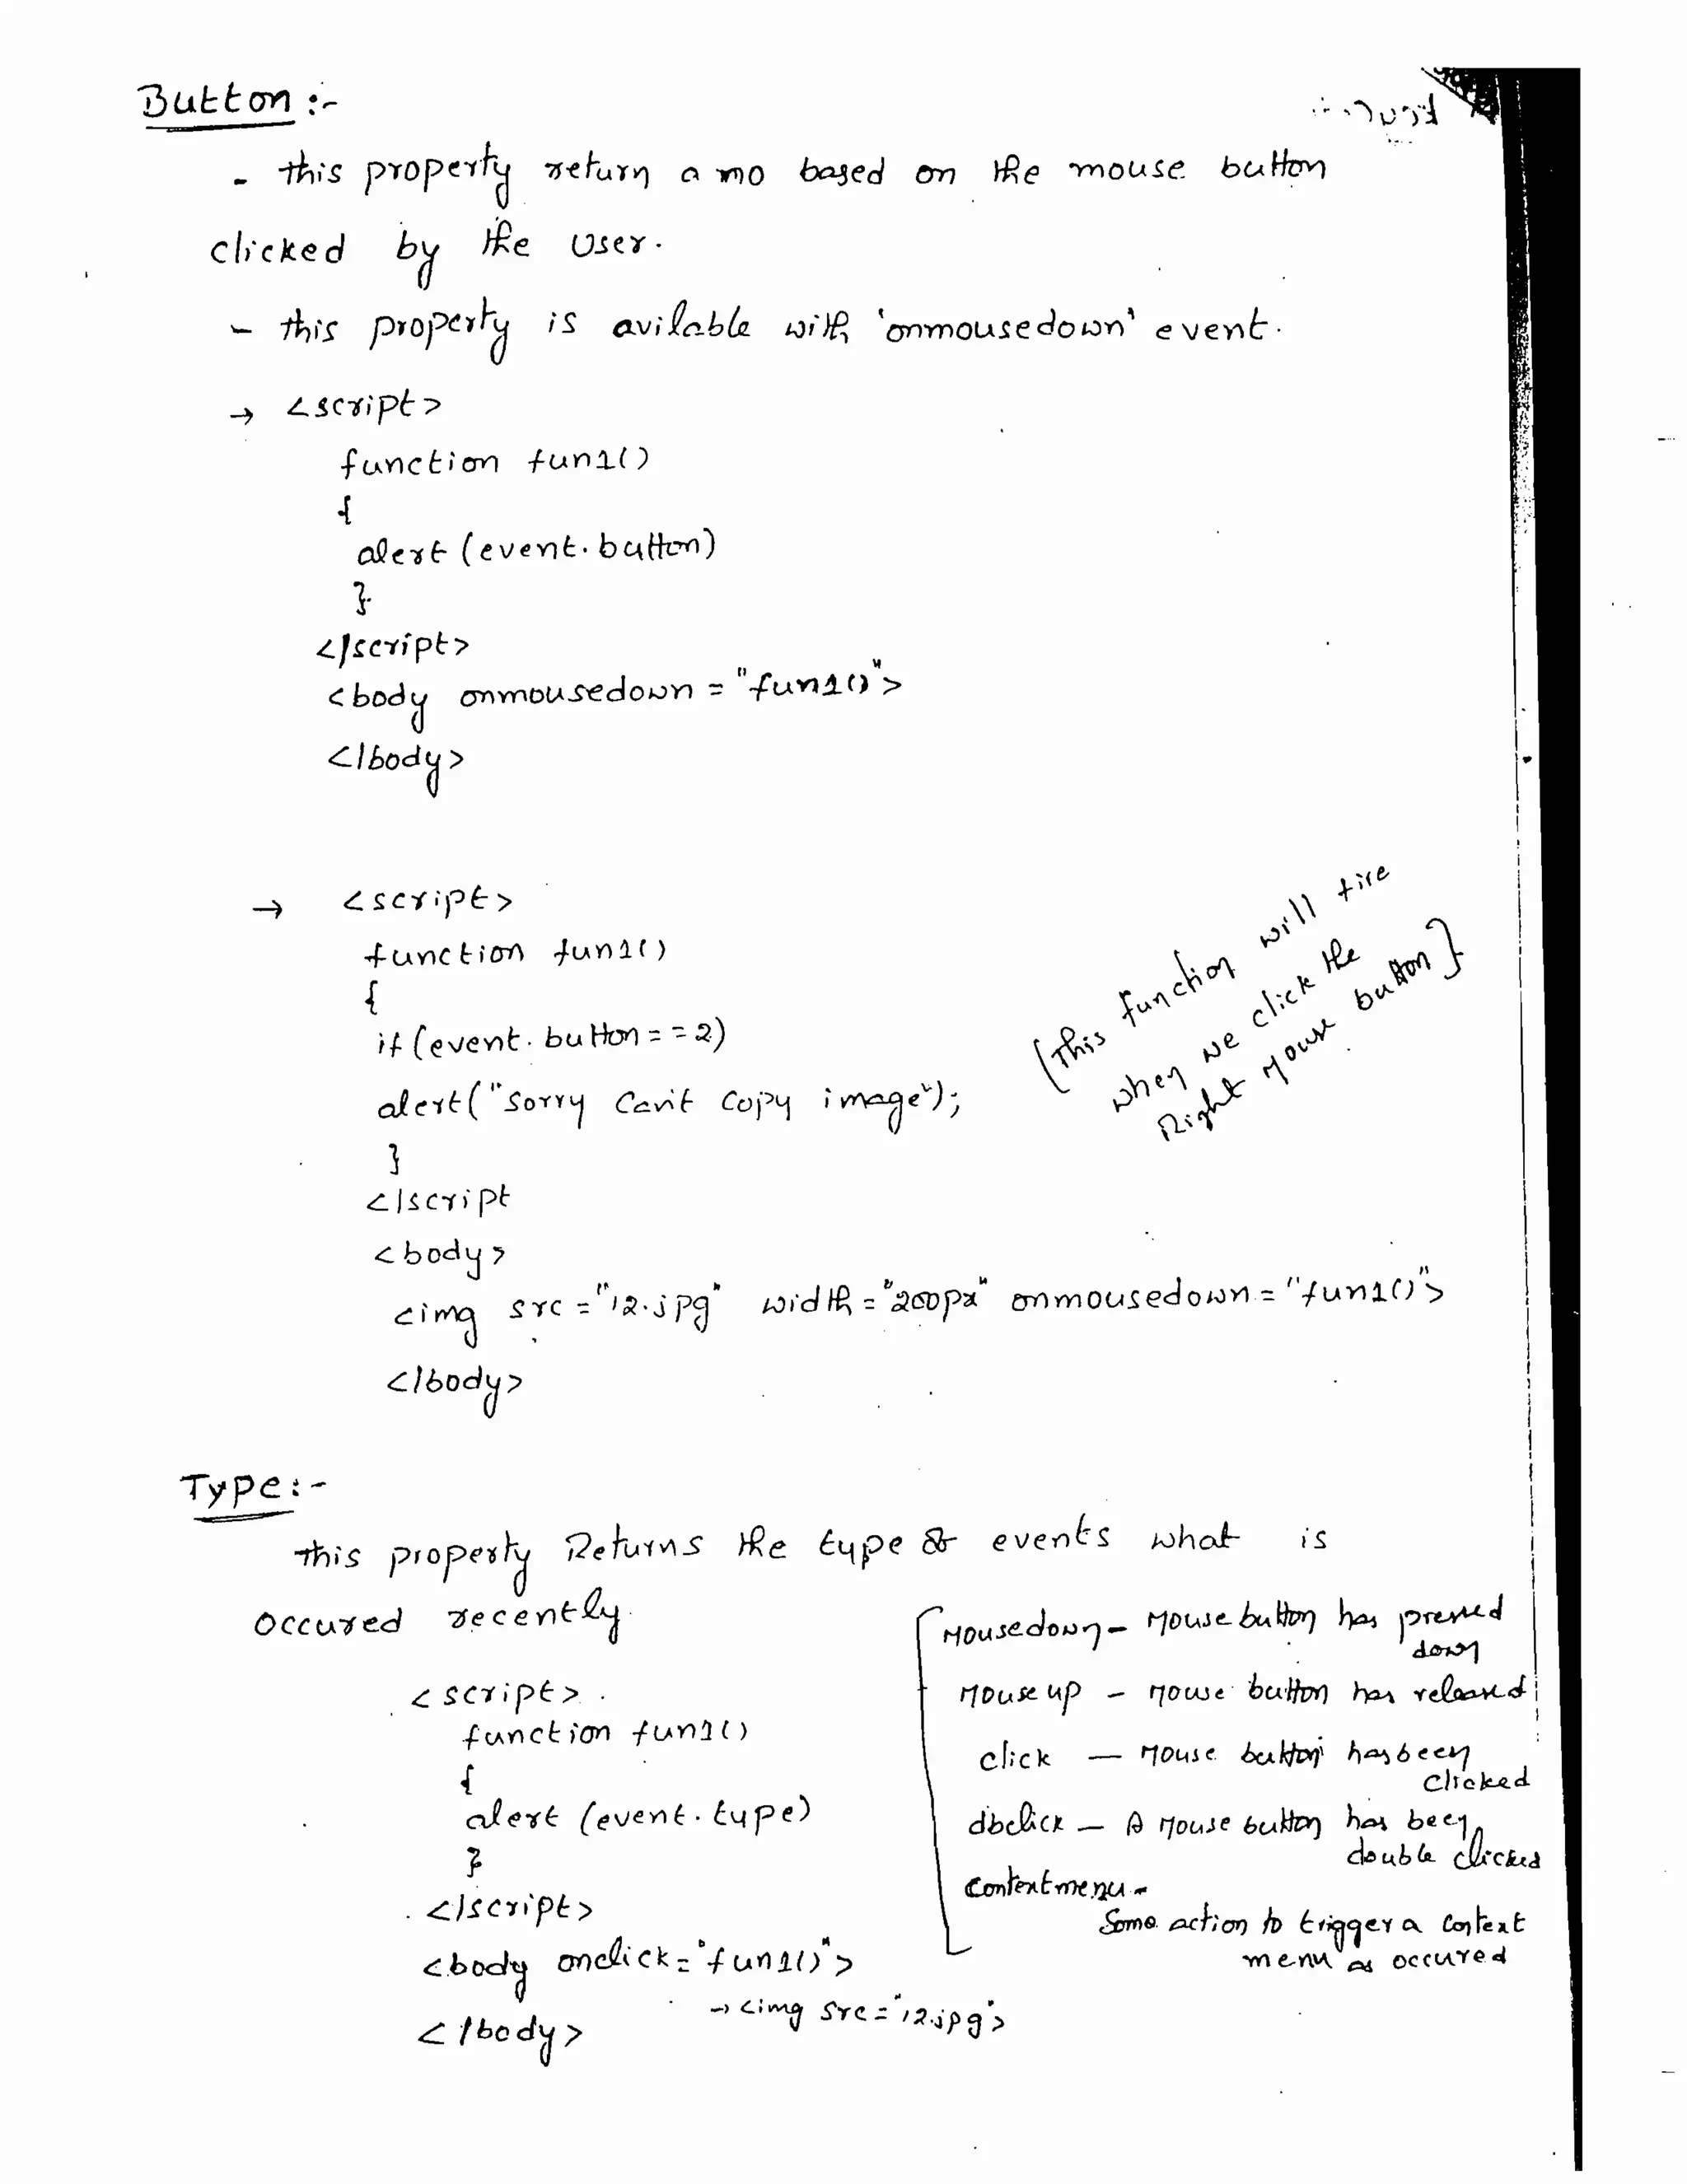 Button :-
- this property return a no based on the mouse button
clicked by the user.
- this property is avilable with 'onmousedown' event.
→ <script>
function fun1()
{
alert (event.button)
}
</script>
<body onmousedown = "fun1()">
</body>
→ <script>
function fun1()
{
if (event.button==2)
alert("Sorry Can't Copy image");
}
</script
<body>
<img src="12.jpg" width="200px" onmousedown="fun1()">
</body>
{This function will fire
when we click the
Right Mouse button}
Type:-
this property Returns the type of events what is
occured recently.
<script>
function fun1()
{
alert (event.type)
}
</script>
<body onclick="fun1()">
→ <img src="12.jpg">
</body>
Mousedown - Mouse button has pressed
down
Mouse up - Mouse button has released
click — Mouse button has been
clicked
dbclick — A Mouse button has been
double clicked
Contextmenu -
Some action to trigger a context
menu as occured